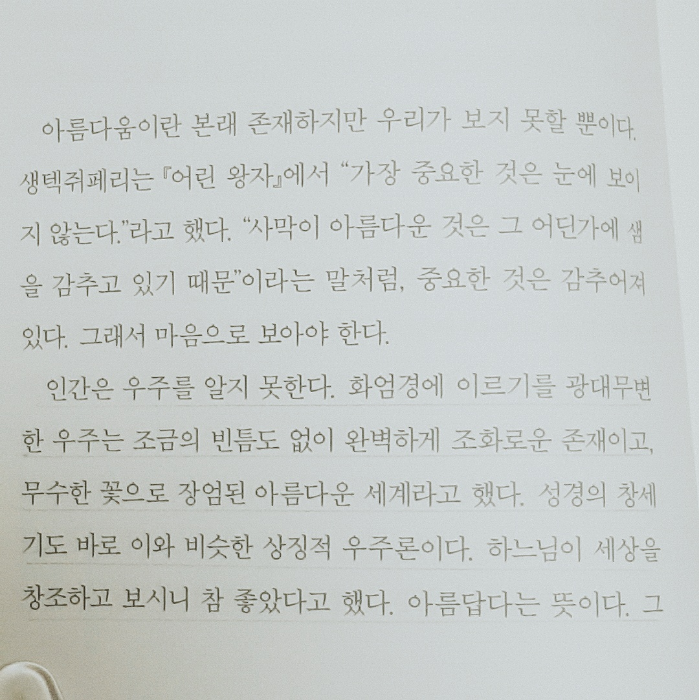 아름다움이란 본래 존재하지만 우리가 보지 못할 뿐이다.
생텍쥐페리는 『어린 왕자』에서 “가장 중요한 것은 눈에 보이
지 않는다.”라고 했다. “사막이 아름다운 것은 그 어딘가에 샘
을 감추고 있기 때문”이라는 말처럼, 중요한 것은 감추어져
있다. 그래서 마음으로 보아야 한다.
인간은 우주를 알지 못한다. 화엄경에 이르기를 광대무변
한 우주는 조금의 빈틈도 없이 완벽하게 조화로운 존재이고,
무수한 꽃으로 장엄된 아름다운 세계라고 했다. 성경의 창세
기도 바로 이와 비슷한 상징적 우주론이다. 하느님이 세상을
창조하고 보시니 참 좋았다고 했다. 아름답다는 뜻이다. 그